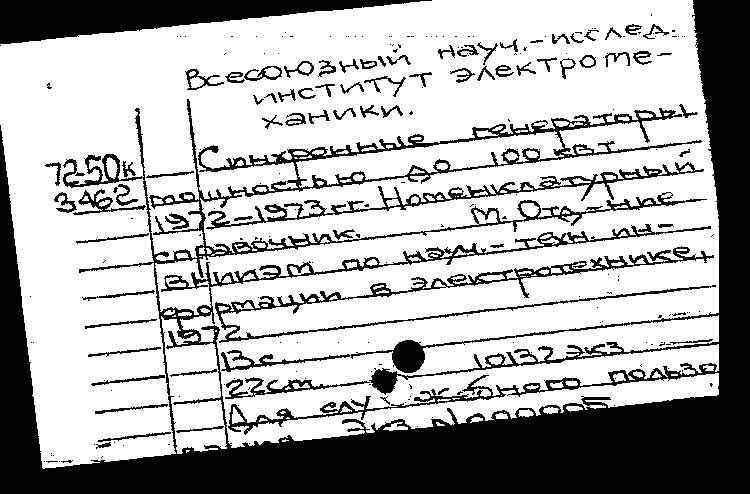 Всесоюзный науч.-исслед.
институт электроме-
ханики.
72-50к Синхронные генераторы
3462 мощностью до 100 квт
1972-1973 гг. Номенклатурный
справочник. М., Отд-ние
ВНИИЭМ по науч.-техн. ин-
формации в электротехнике,
1972.
13 с. 10132 экз.
22 см.
Для служебного пользо
вания Экз №000005